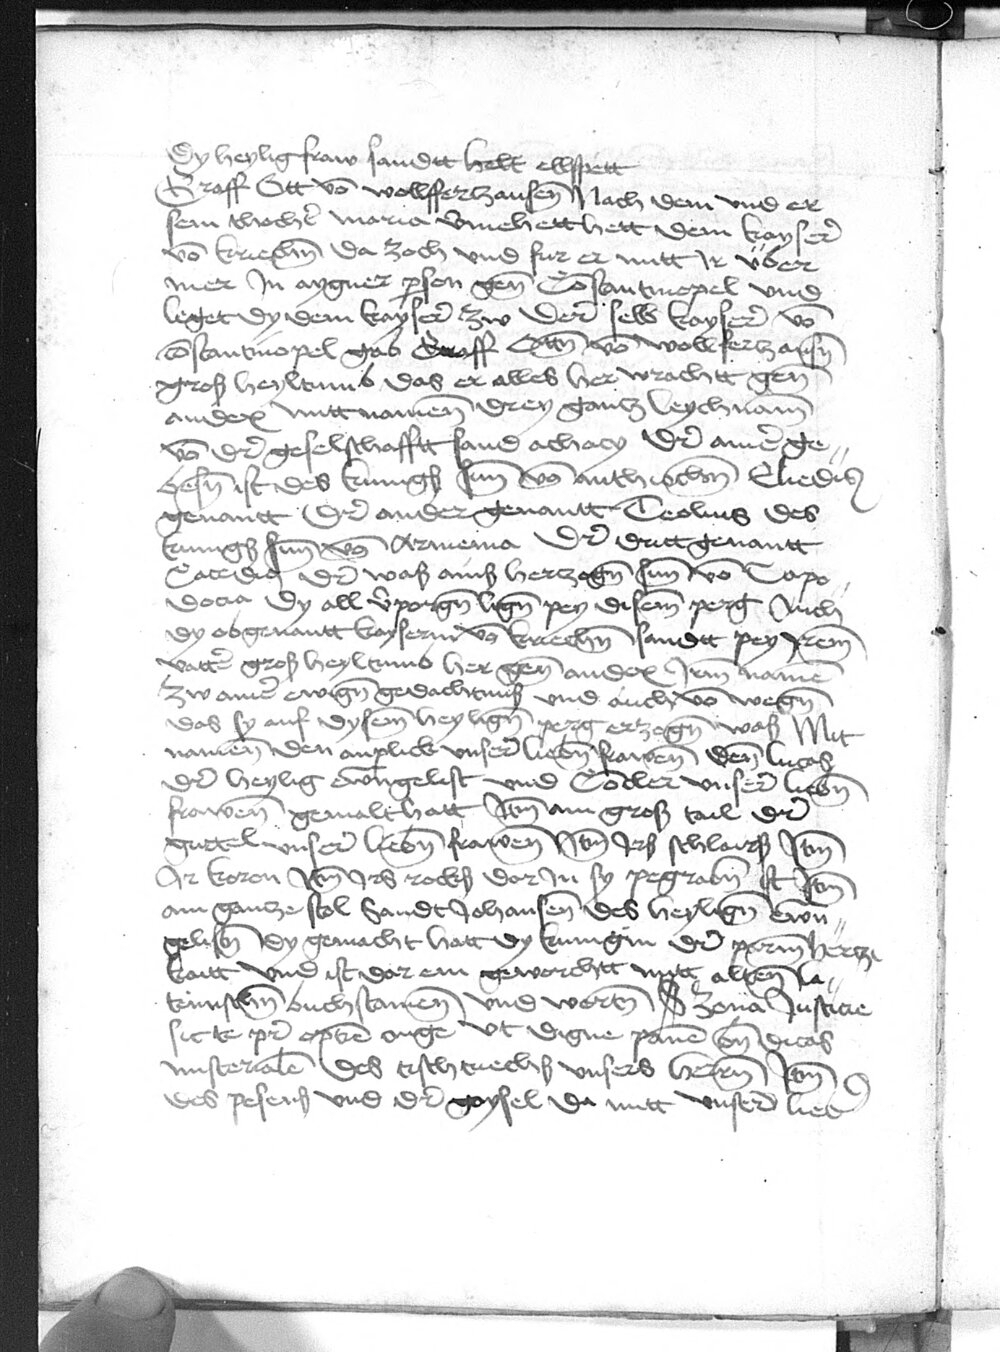 Dy heylig fraw sandtt helt ellspett
Graff Ott vō wollffertzhausen Nach dem vnd er
sein thocher maria v̄mehett hett dem kayser
vō kriechn̄ da zoch vnd fur er mitt Ir über
mer In aygner pson gen Cōstantinopel vnd
leget dy dem kayser zw Der selb kayser vō
cōstantinopel gab Graff Ottn̄ vō wollfertzhausn̄
groß heyltumb das er alles her wrachtt gen
andex mitt namen drey gantz leychnam
vō dr̄ geselschafftt sand achacy Dr̄ ainer ge„
besn̄ ist des kunigß sun vō anthiochn̄ Eliedis
genantt Dr̄ ander genantt Teolius des
kunigß sun vō Armenia Dr̄ dritt genantt
Catedia dr̄ waß ainß hertzogn̄ sun vō Capo„
docia Dy all v̄porgn̄ lign̄ pey disem perg Auch
dy obgenantt kayserin vō kriechn̄ sandtt pey Irem
vatter groß heyltumb her gen andex Irm namē
zw ainer ewign̄ gedachtnuß vnd auch vō wegn̄
das sy auf dysem heylign̄ perg erzogn̄ waß Mit
namen den anplick vnser liebn̄ frawen den lucas
dr̄ heylig ewngelist vnd Cōcler vnser liebn̄
frawen gemalt hatt Itm̄ ain groß tail dr̄
gurtel vnser liebn̄ frawen Itm̄ Irß schlairß Itm̄
Ir koren Itm̄ Irs rockß dar In sy pegrabn̄ ist Itm̄
ain gantze stol Sandt Johansen des heylign̄ ewn„
gelistn̄ dy gemacht hatt dy kunigin dr̄ parmhertzi
kaitt vnd ist dar ein geworchtt mitt alten la„
teinischn̄ buchstamen vnd wortn̄ S Zona Justicie
sic te pr̄ optīe Vt digne pane dicas
misteriale des tischtuechß vnsers herrn̄ Itm̄
des pesenß vnd dr̄ gaysel da mitt vnser lieb